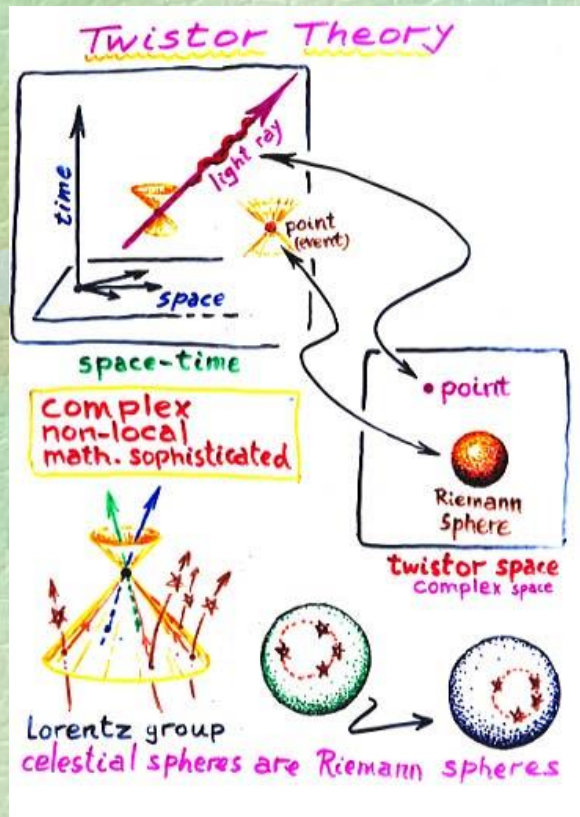 Twistor Theory
time
light ray
point
(event)
space
space-time
complex
non-local
math. sophisticated
point
Riemann
sphere
twistor space
complex space
Lorentz group
celestial spheres are Riemann spheres